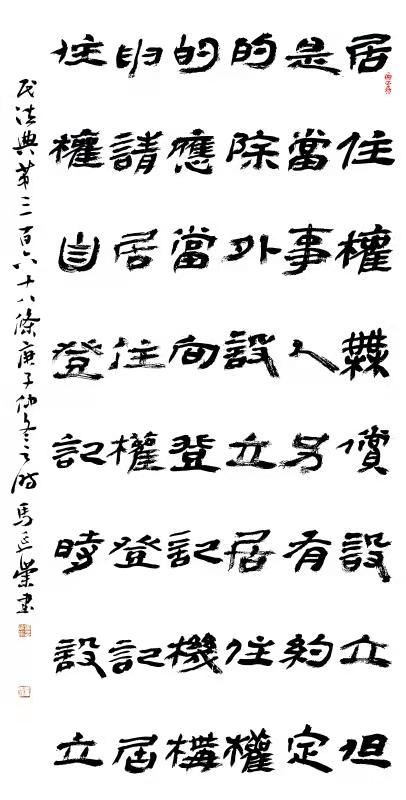 居住權無償設立但
是當事人另有約定
的除外設立居住權
的應當向登記機構
申請居住權登記居
住權自登記時設立
民法典第三百六十八條庚子仲冬之時馬榮書